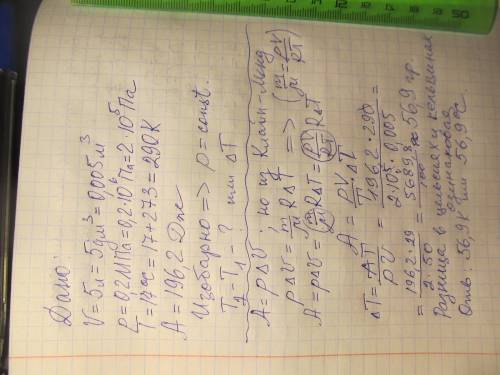 Дано:
V = 5л = 5дм³ = 0,005м³
P = 0,2МПа = 0,2·10⁶Па = 2·10⁵Па
T = 17°C = 17+273 = 290К
A = 196,2 Дж
Изобарно => p = const.
T₂ - T₁ - ? или ΔT
A = pΔV; но из Клайп-Менд
pΔV = m/μ RΔT => (m/μ = PV/RT)
A = pΔV = (m/μ) RΔT = (PV/RT) RΔT
A = PV/T ΔT
ΔT = AT/PV = 196,2·290/2·10⁵·0,005 =
= 196,2·29/2·50 = 5689,8/100 ≈ 56,9 гр.
Разница в цельсиях и кельвинах
одинаковая
Отв: 56,9К или 56,9°C
50